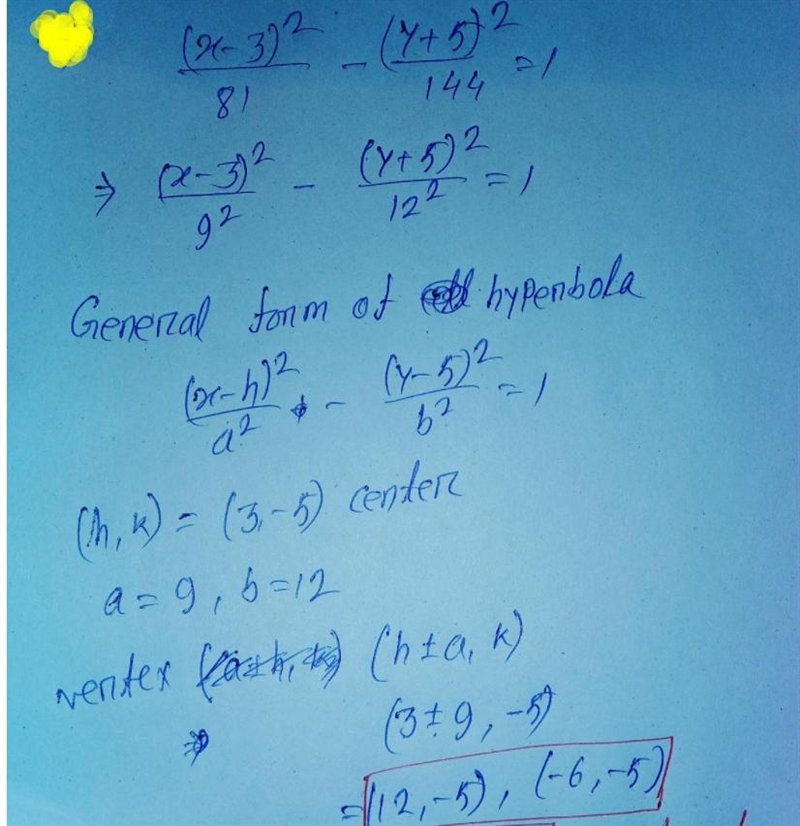 (x-3)²/81 - (y+5)²/144 = 1
⇒ (x-3)²/9² - (y+5)²/12² = 1
General form of hyperbola
(x-h)²/a² - (y-5)²/b² = 1
(h, k) = (3, -5) center
a = 9, b = 12
vertex (h ± a, k)
⇒ (3 ± 9, -5)
= (12, -5), (-6, -5)